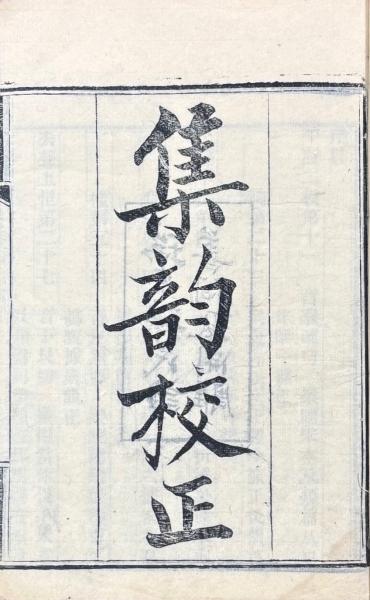 集韵校正